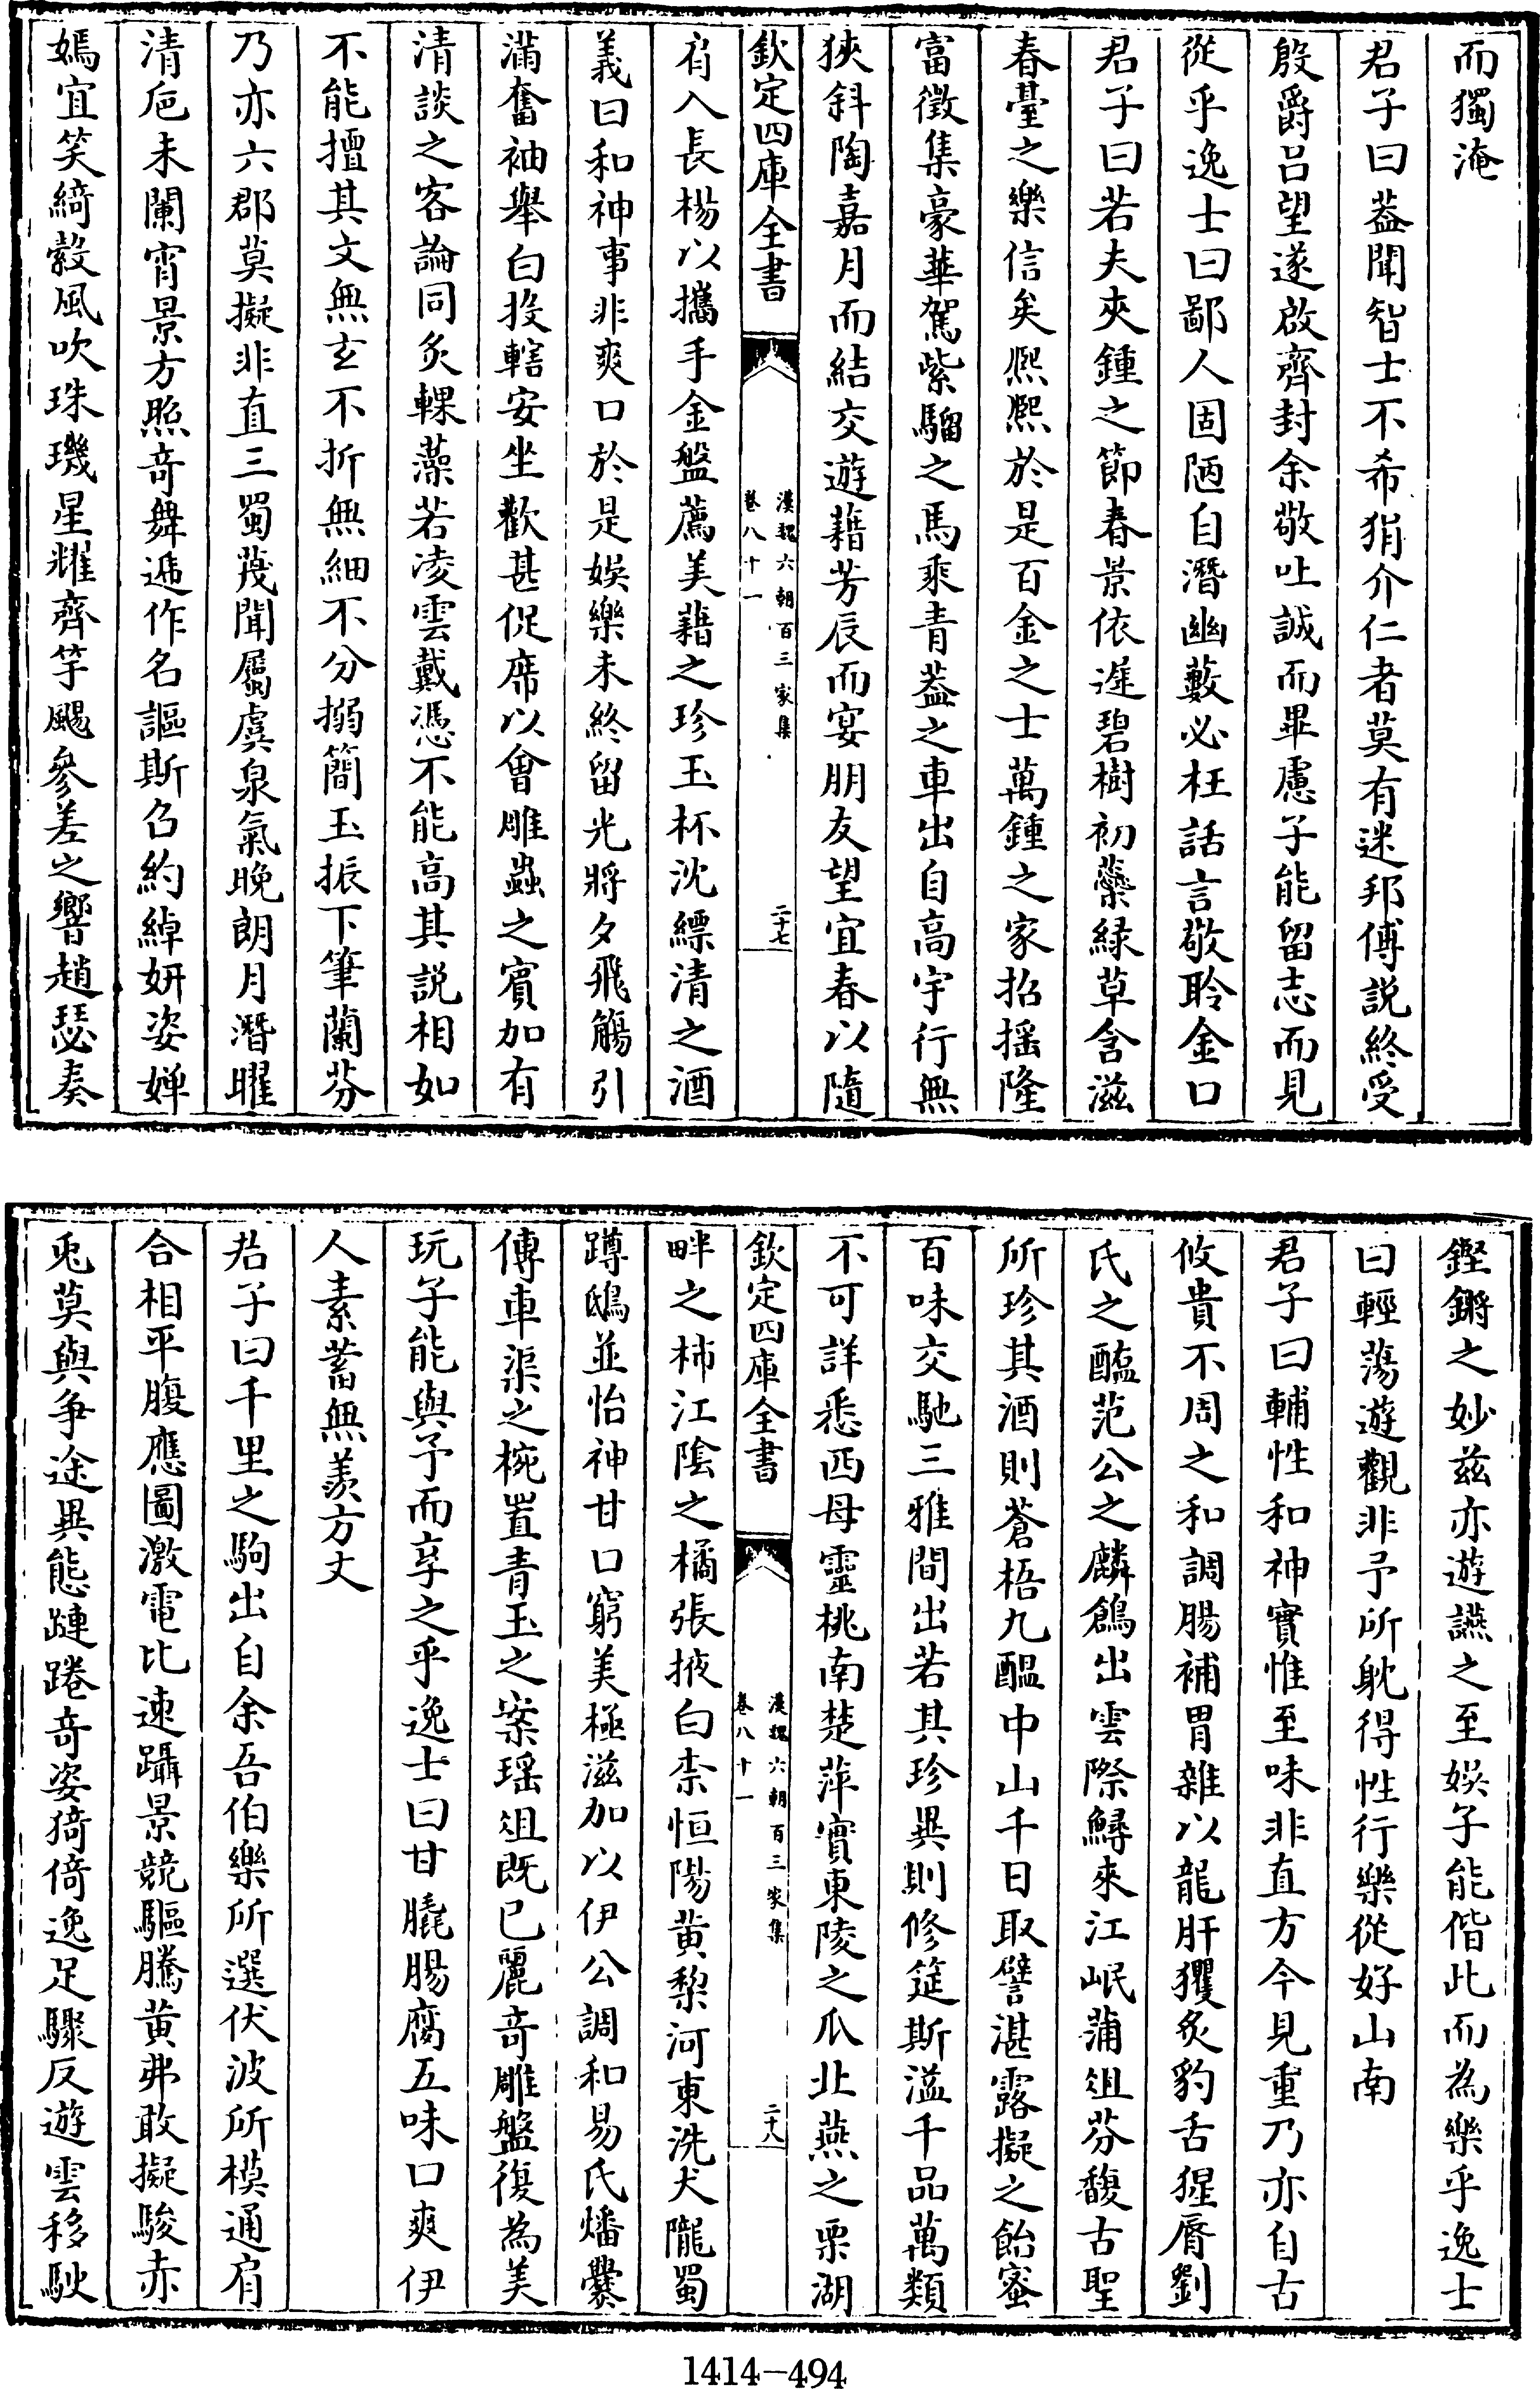 而獨淹
君子曰葢聞智士不希狷介仁者莫有迷邦傅説終受
殷爵吕望遂啟齊封余敬吐誠而畢慮子能留志而見
從乎逸士曰鄙人固陋自潛幽藪必枉話言敬聆金口
君子曰若夫夾鍾之節春景依遲碧樹初蘂緑草含滋
春臺之樂信矣熈熈於是百金之士萬鍾之家招摇隆
富徵集豪華駕紫騮之馬乘青葢之車出自高宇行無
狹斜陶嘉月而結交遊藉芳辰而宴朋友望宜春以隨
欽定四庫全書
漢魏六朝百三家集
卷八十一
二十七
肩入長楊以攜手金盤薦美藉之珍玉杯沈縹清之酒
義曰和神事非爽口於是娱樂未終留光將夕飛觴引
滿奮袖舉白投轄安坐歡甚促席以會雕蟲之賓加有
清談之客論同炙輠藻若凌雲戴憑不能高其説相如
不能擅其文無玄不折無細不分搦簡玉振下筆蘭芬
乃亦六郡莫擬非直三蜀蔑聞屬虞泉氣晚朗月潛曜
清卮未闌宵景方照竒舞遞作名謳斯召約綽妍姿嬋
嫣宜笑綺縠風吹珠璣星耀齊竽颺參差之響趙瑟奏
鏗鏘之妙兹亦遊讌之至娱子能偕此而為樂乎逸士
曰輕蕩遊觀非予所躭得性行樂從好山南
君子曰輔性和神實惟至味非直方今見重乃亦自古
攸貴不周之和調腸補胃雜以龍肝玃炙豹舌猩脣劉
氏之醢范公之麟鶬出雲際鱘來江岷蒲俎芬馥古聖
所珍其酒則蒼梧九醖中山千日取譬湛露擬之飴蜜
百味交馳三雅間出若其珍異則修筵斯溢千品萬類
不可詳悉西母靈桃南楚萍實東陵之瓜北燕之栗湖
欽定四庫全書
漢魏六朝百三家集
卷八十一
二十八
畔之柿江隂之橘張掖白柰恒陽黄棃河東洗犬隴蜀
蹲鴟並怡神甘口窮美極滋加以伊公調和易氏燔爨
傅車渠之椀置青玉之案瑶俎既已麗竒雕盤復為美
玩子能與予而享之乎逸士曰甘膬腸腐五味口爽伊
人素蓄無羨方丈
君子曰千里之駒出自余吾伯樂所選伏波所模通肩
合相平腹應圖激電比速躡景競驅騰黄弗敢擬駿赤
兎莫與争途異態蹥踡竒姿猗傂逸足驟反遊雲移駛
1414-494